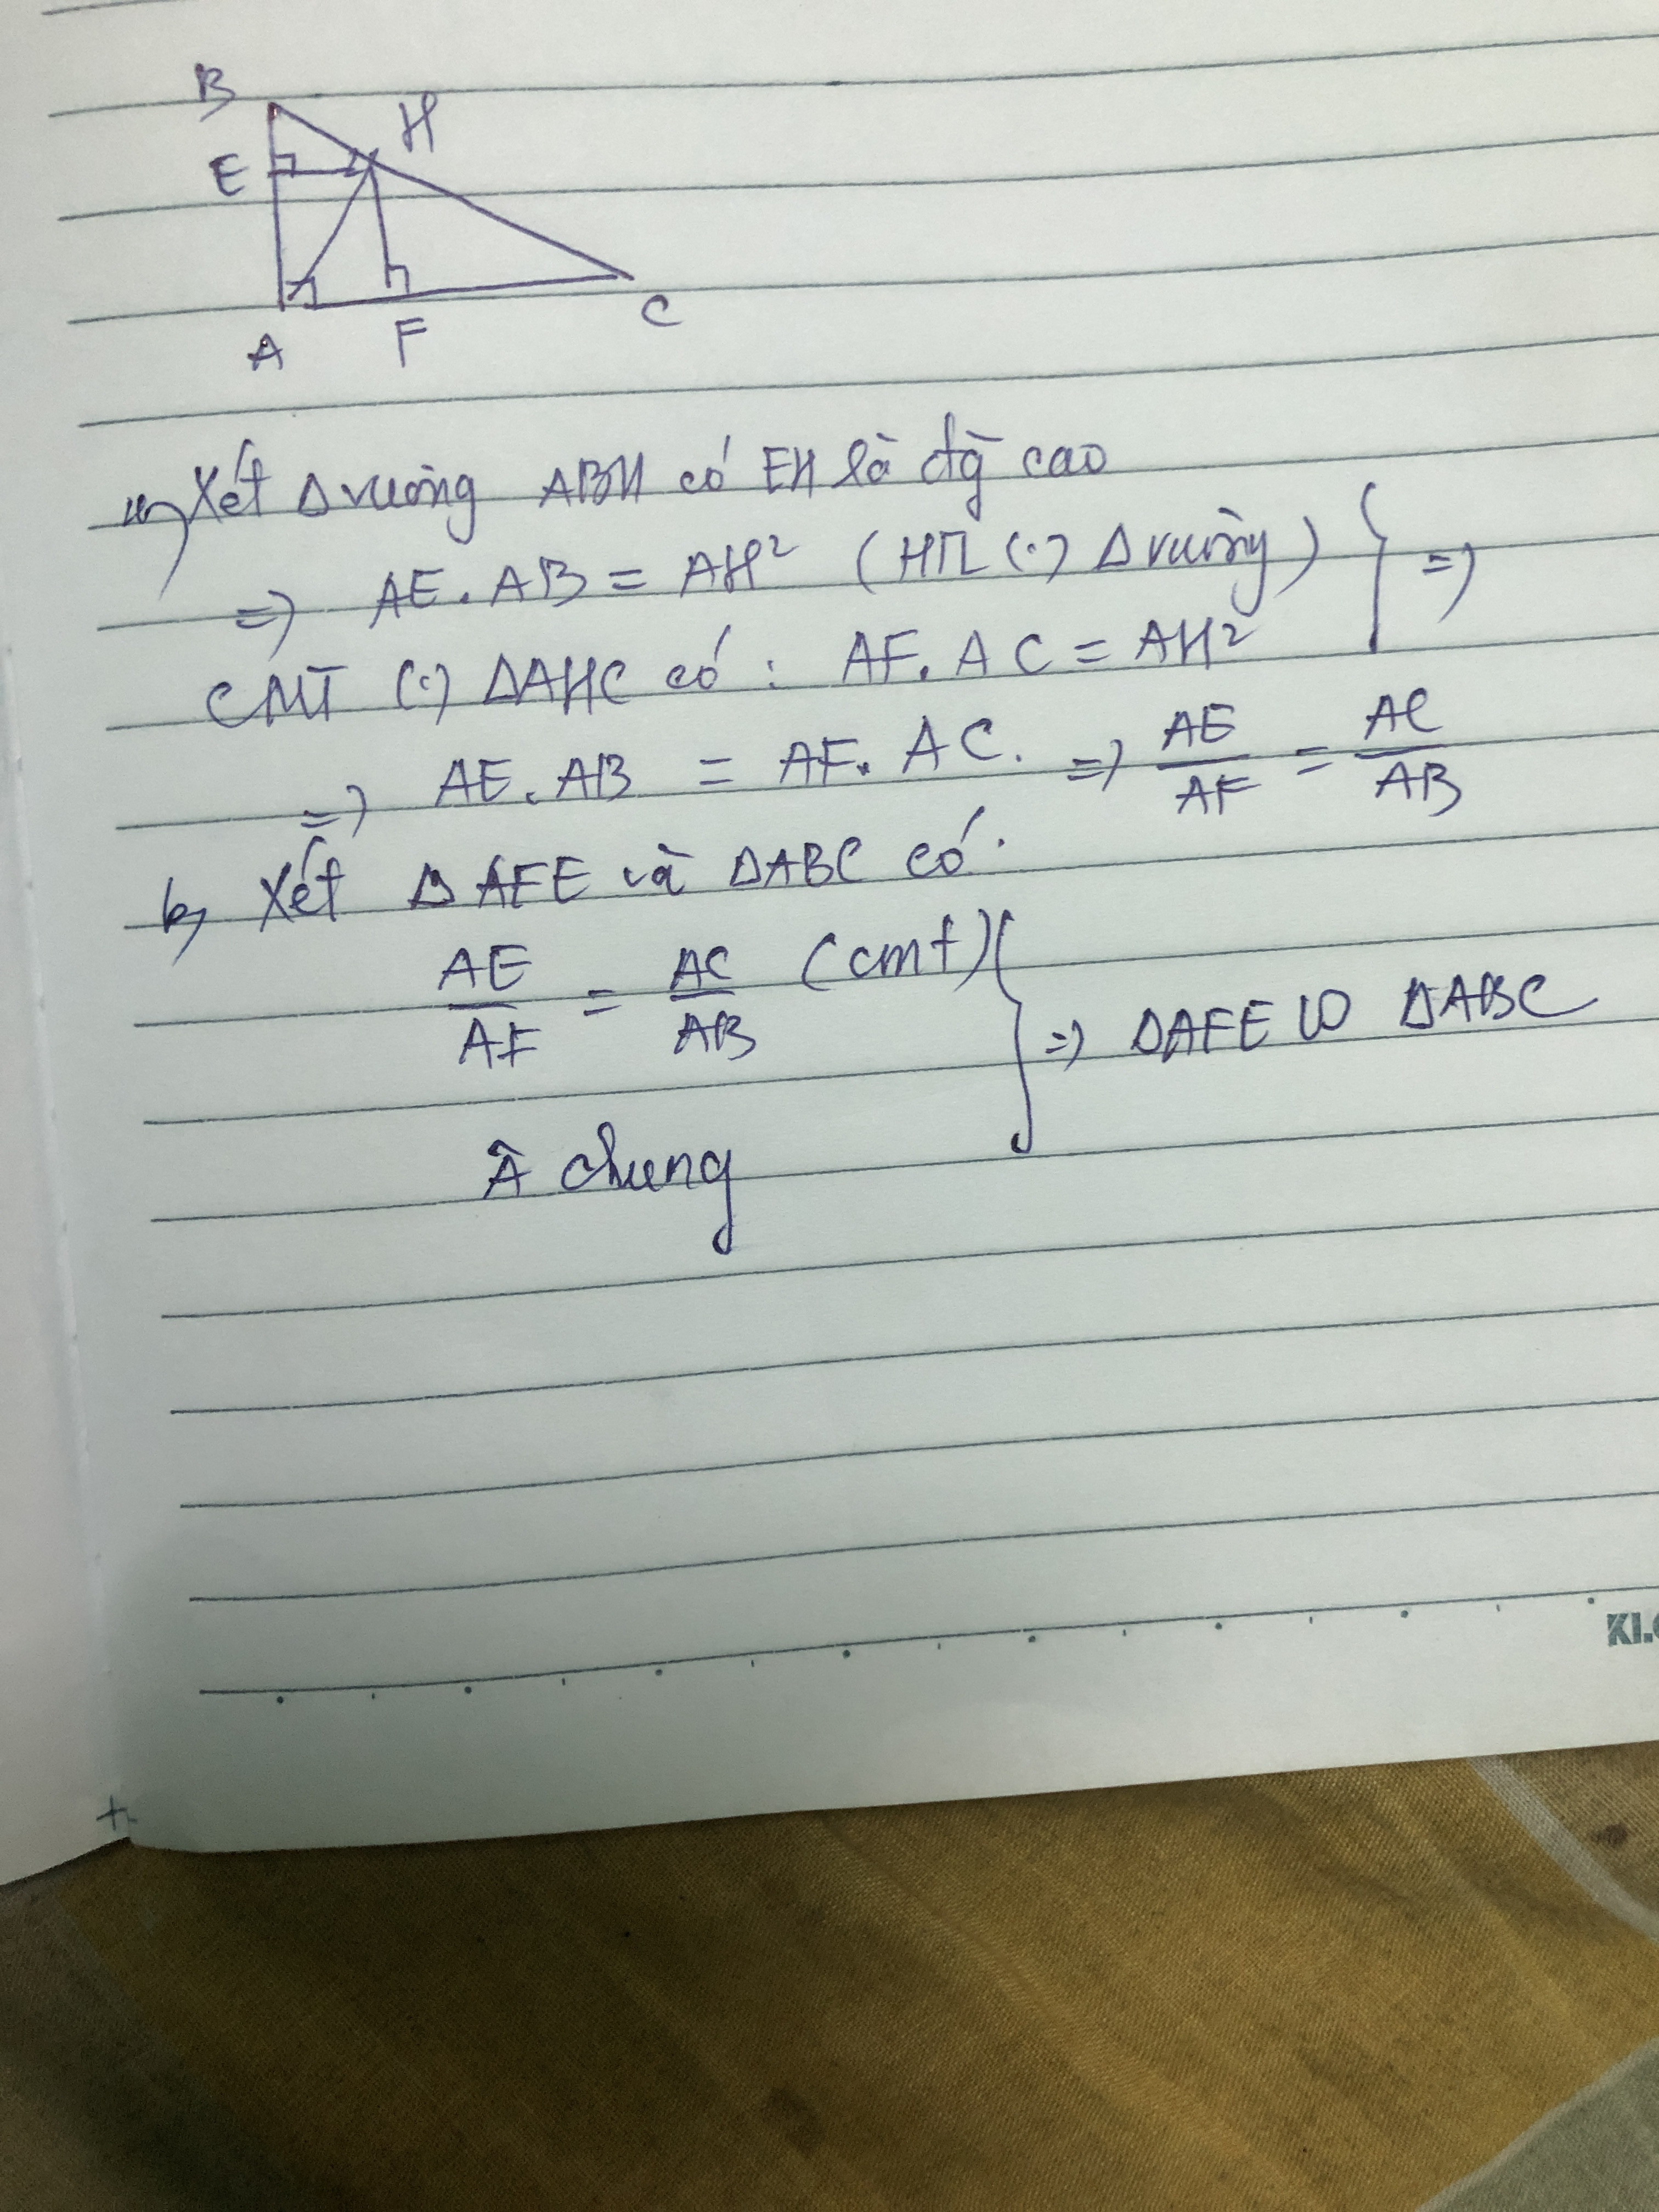 B
H
E
A
F
C
a, Xét Δ vuông ABH có EH là đg cao
=> AE.AB = AH² (HTL (.) Δ vuông) } =>
CMT (.) ΔAHC có : AF.AC = AH²
=> AE.AB = AF.AC. => AE/AF = AC/AB
b, Xét ΔAFE và ΔABC có:
AE/AF = AC/AB (cmt) } => ΔAFE ∽ ΔABC
Â chung